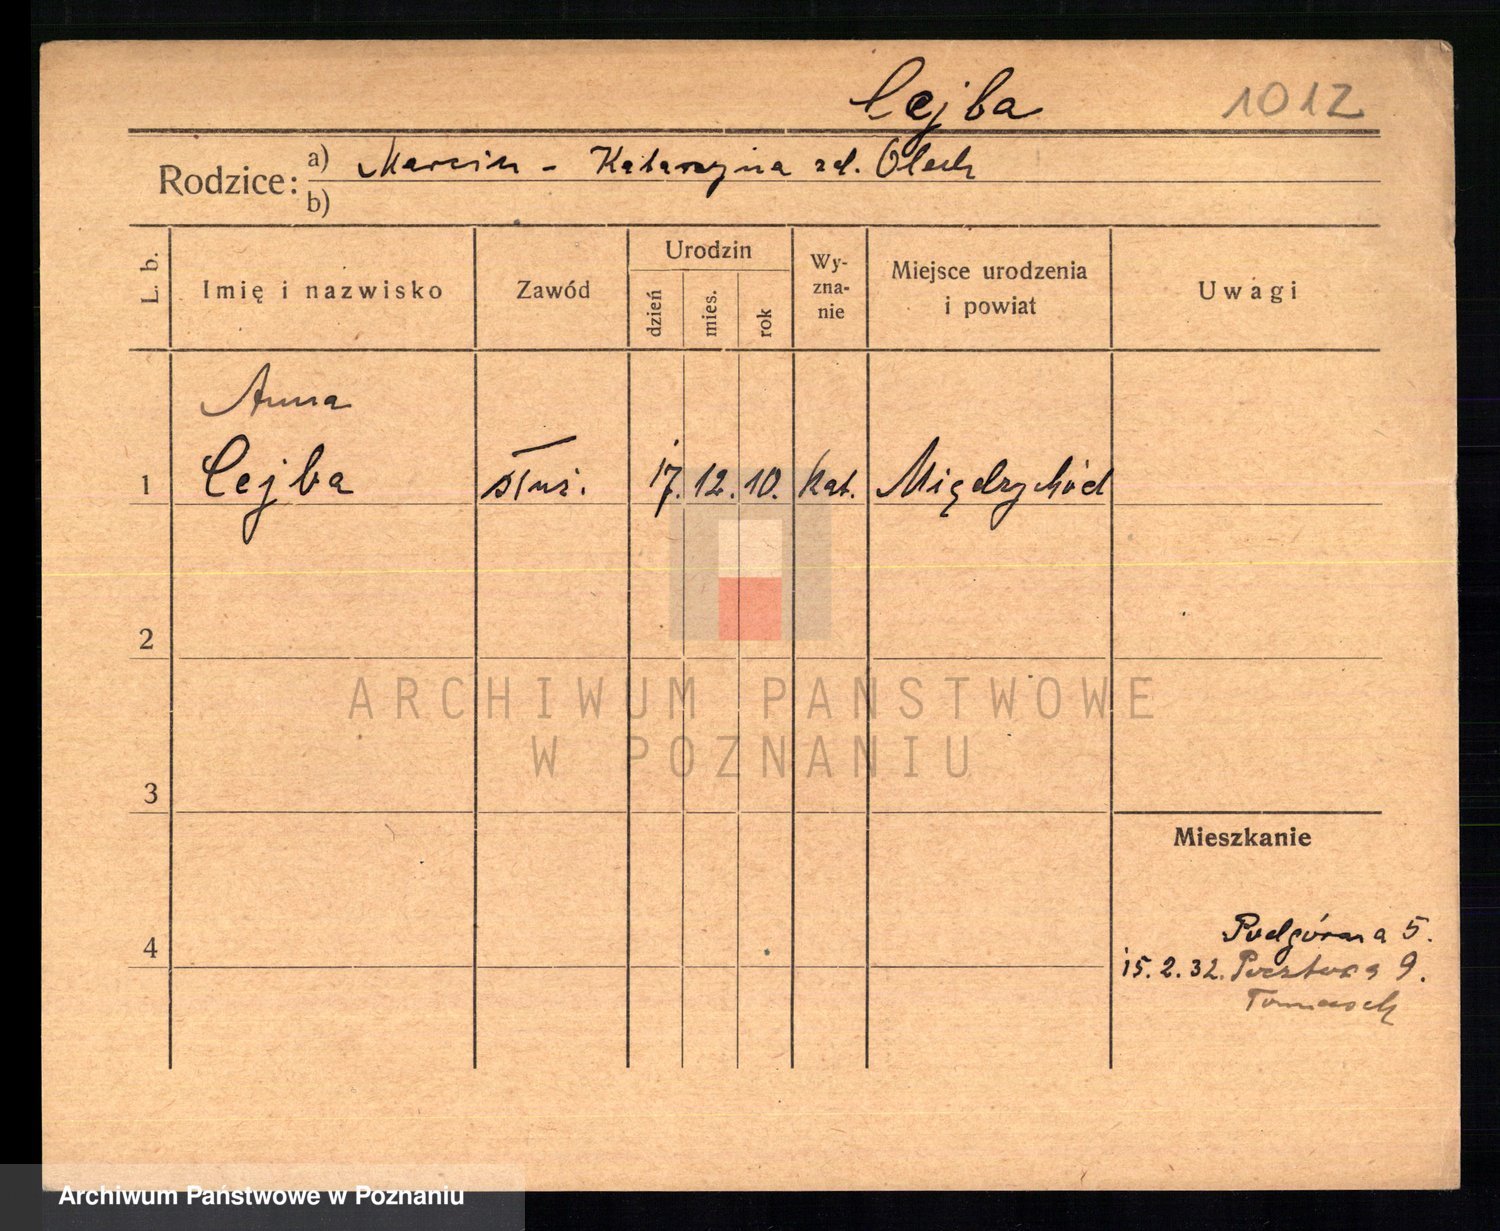 Cejba 1012
Rodzice: a) Marcin - Katarzyna zd. Olech
b)
L. b.
Imię i nazwisko
Zawód
Urodzin
dzień
mies.
rok
Wy-
zna-
nie
Miejsce urodzenia
i powiat
Uwagi
Anna
1 Cejba służ. 17. 12. 10. kat. Międzychód
2
3
4
Mieszkanie
Podgórna 5.
15. 2. 32. Pocztowa 9.
ARCHIWUM PAŃSTWOWE
W POZNANIU
Archiwum Państwowe w Poznaniu